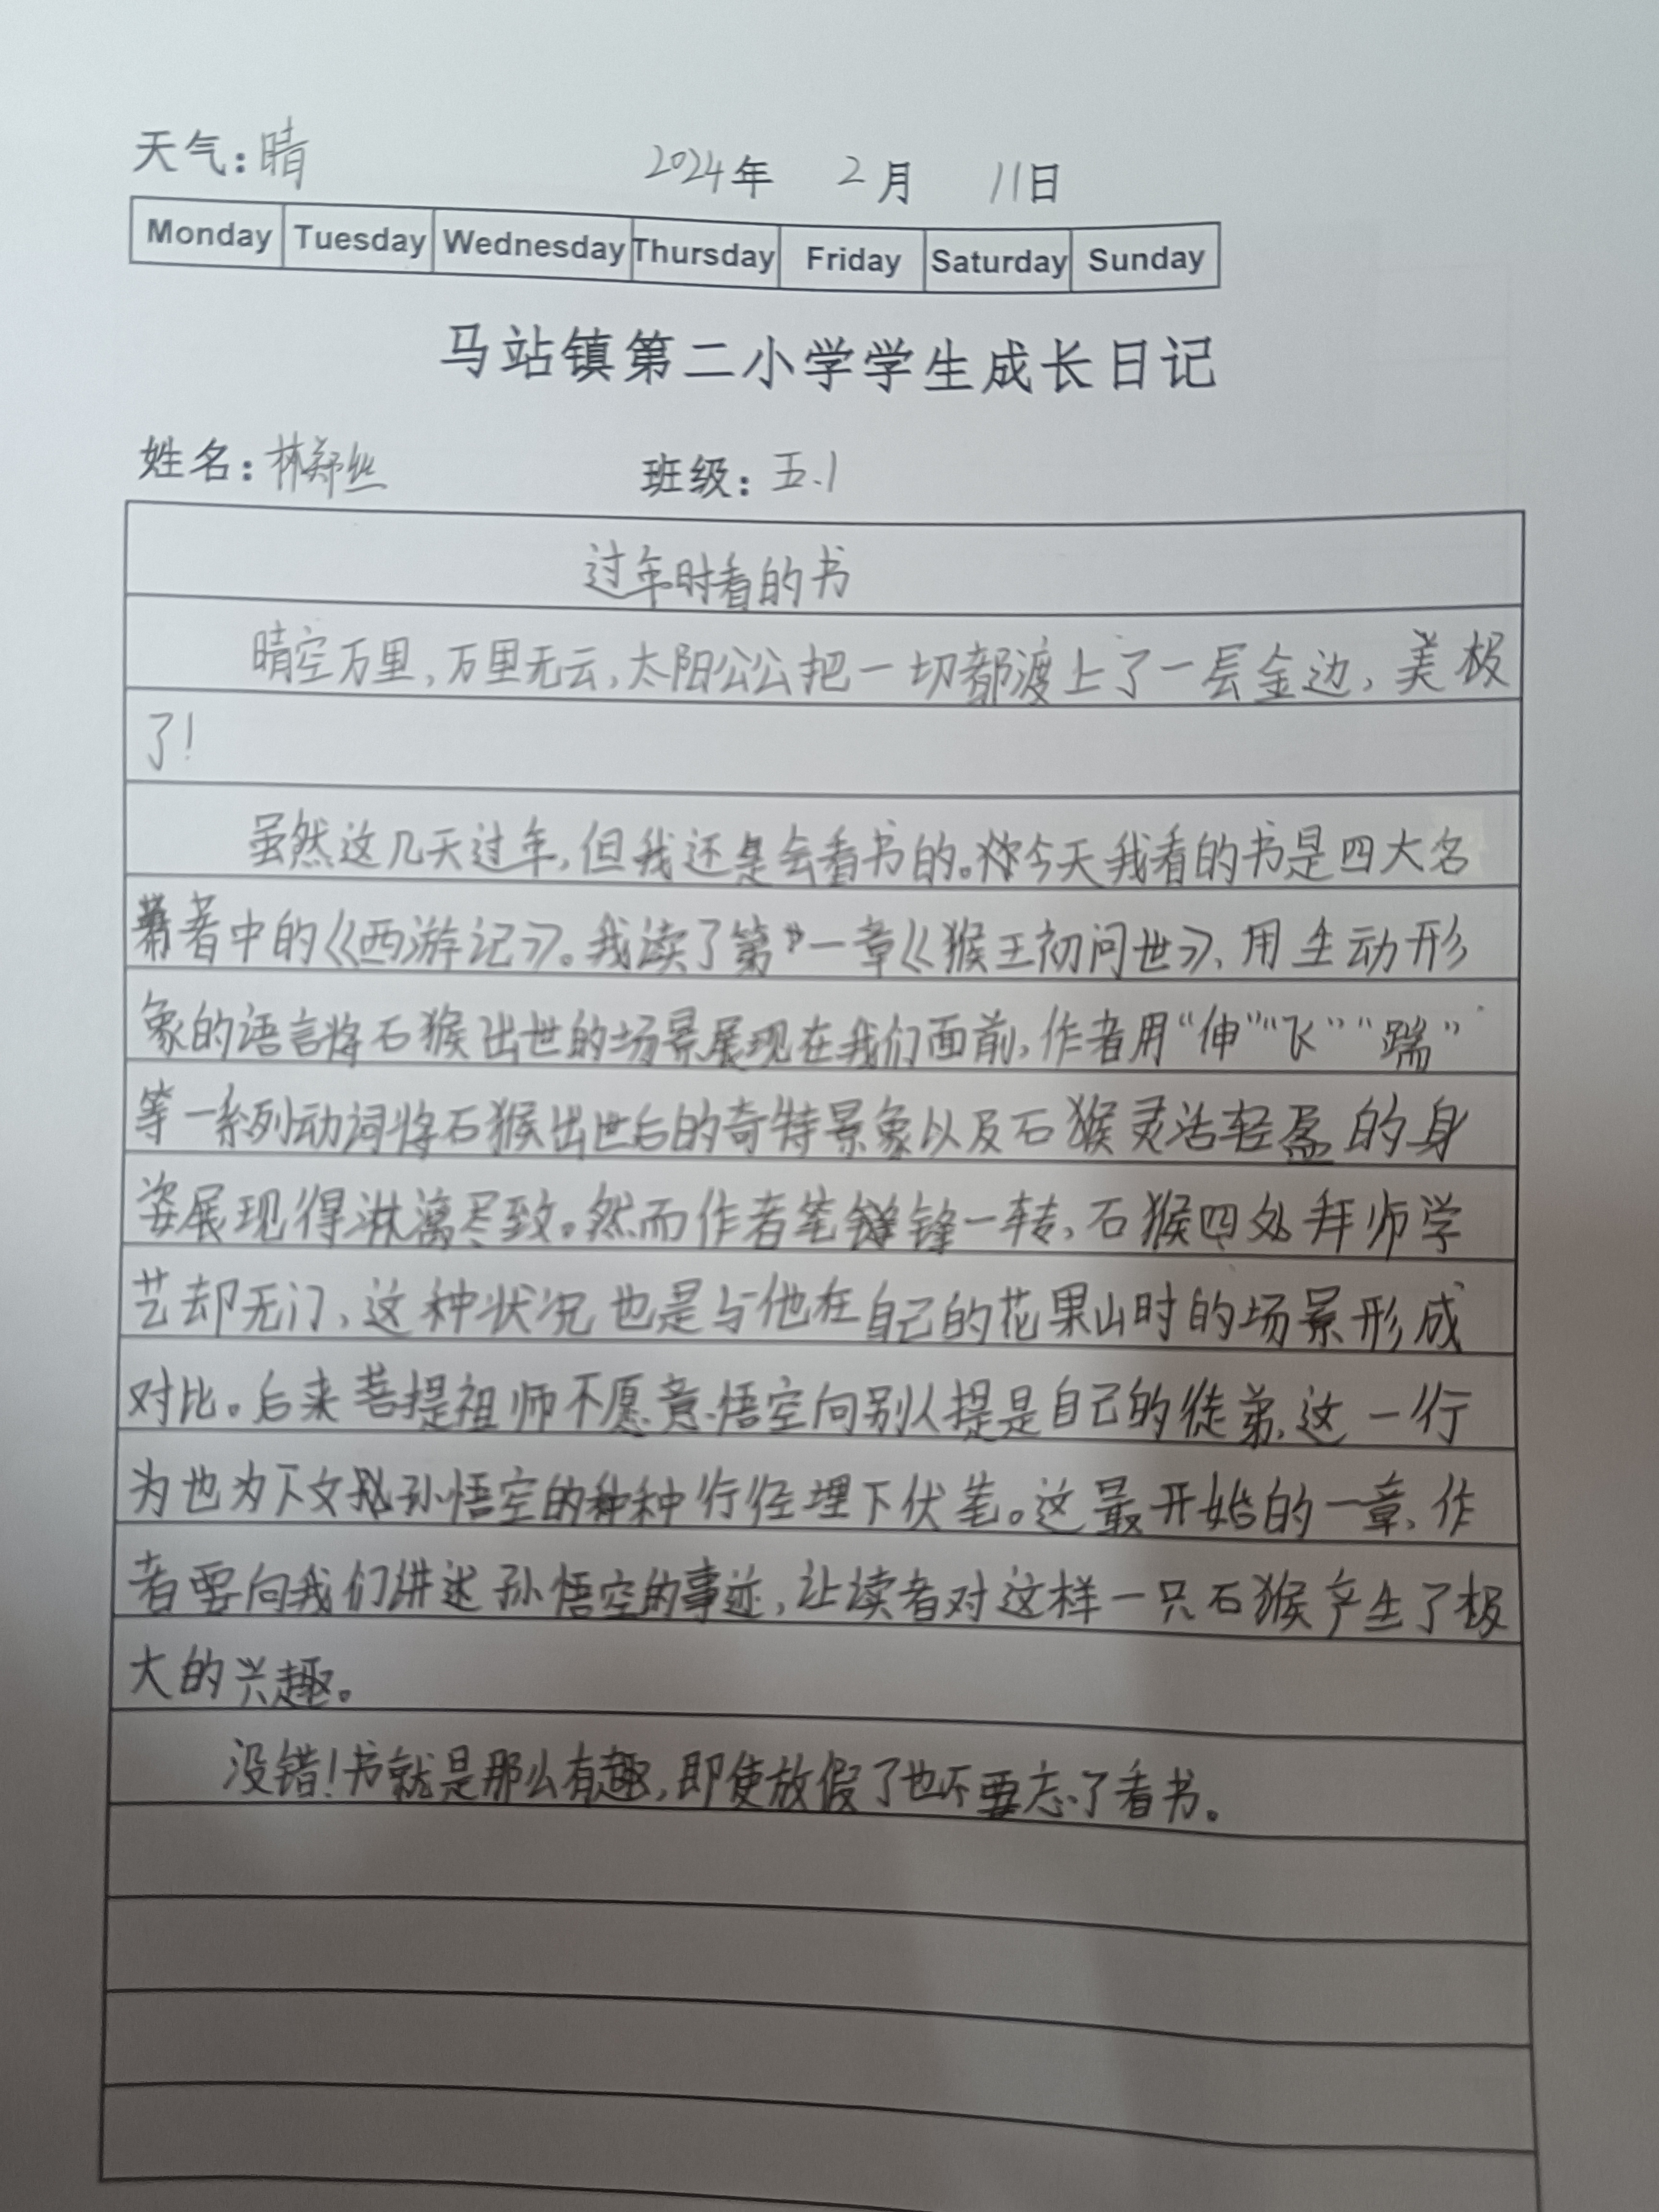 天气:晴 2024年 2月 11日
Monday Tuesday Wednesday Thursday Friday Saturday Sunday
马站镇第二小学学生成长日记
姓名:林舒丝 班级:五.1
过年时看的书
晴空万里,万里无云,太阳公公把一切都渡上了一层金边,美极
了!
虽然这几天过年,但我还是会看书的。今天我看的书是四大名
著中的《西游记》。我读了第一章《猴王初问世》,用生动形
象的语言将石猴出世的场景展现在我们面前,作者用“伸”“飞”“踹”
等一系列动词将石猴出世后的奇特景象以及石猴灵活轻盈的身
姿展现得淋漓尽致。然而作者笔锋一转,石猴四处拜师学
艺却无门,这种状况也是与他在自己的花果山时的场景形成
对比。后来菩提祖师不愿意悟空向别人提是自己的徒弟,这一行
为也为下文孙悟空的种种行径埋下伏笔。这最开始的一章,作
者要向我们讲述孙悟空的事迹,让读者对这样一只石猴产生了极
大的兴趣。
没错!书就是那么有趣,即使放假了也不要忘了看书。